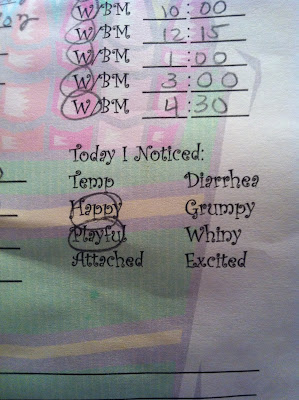 W/BM 10:00
W/BM 12:15
W/BM 1:00
W/BM 3:00
W/BM 4:30
Today I Noticed:
Temp Diarrhea
Happy Grumpy
Playful Whiny
Attached Excited